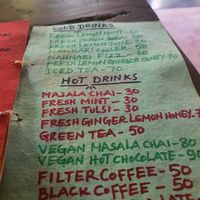 COLD DRINKS
FRESH LEMON MINT - 50
FRESH LEMON SODA - 50
FRESH LEMON JUICE - 50
NANNARI COOLER - 50
NANNARI FIZZ - 60
FRESH LEMON GINGER HONEY - 70
ICED TEA - 70
HOT DRINKS
MASALA CHAI - 30
FRESH MINT - 30
FRESH TULSI - 30
FRESH GINGER LEMON HONEY - 7
GREEN TEA - 50
VEGAN MASALA CHAI - 80
VEGAN HOT CHOCOLATE - 90
FILTER COFFEE - 50
BLACK COFFEE - 50